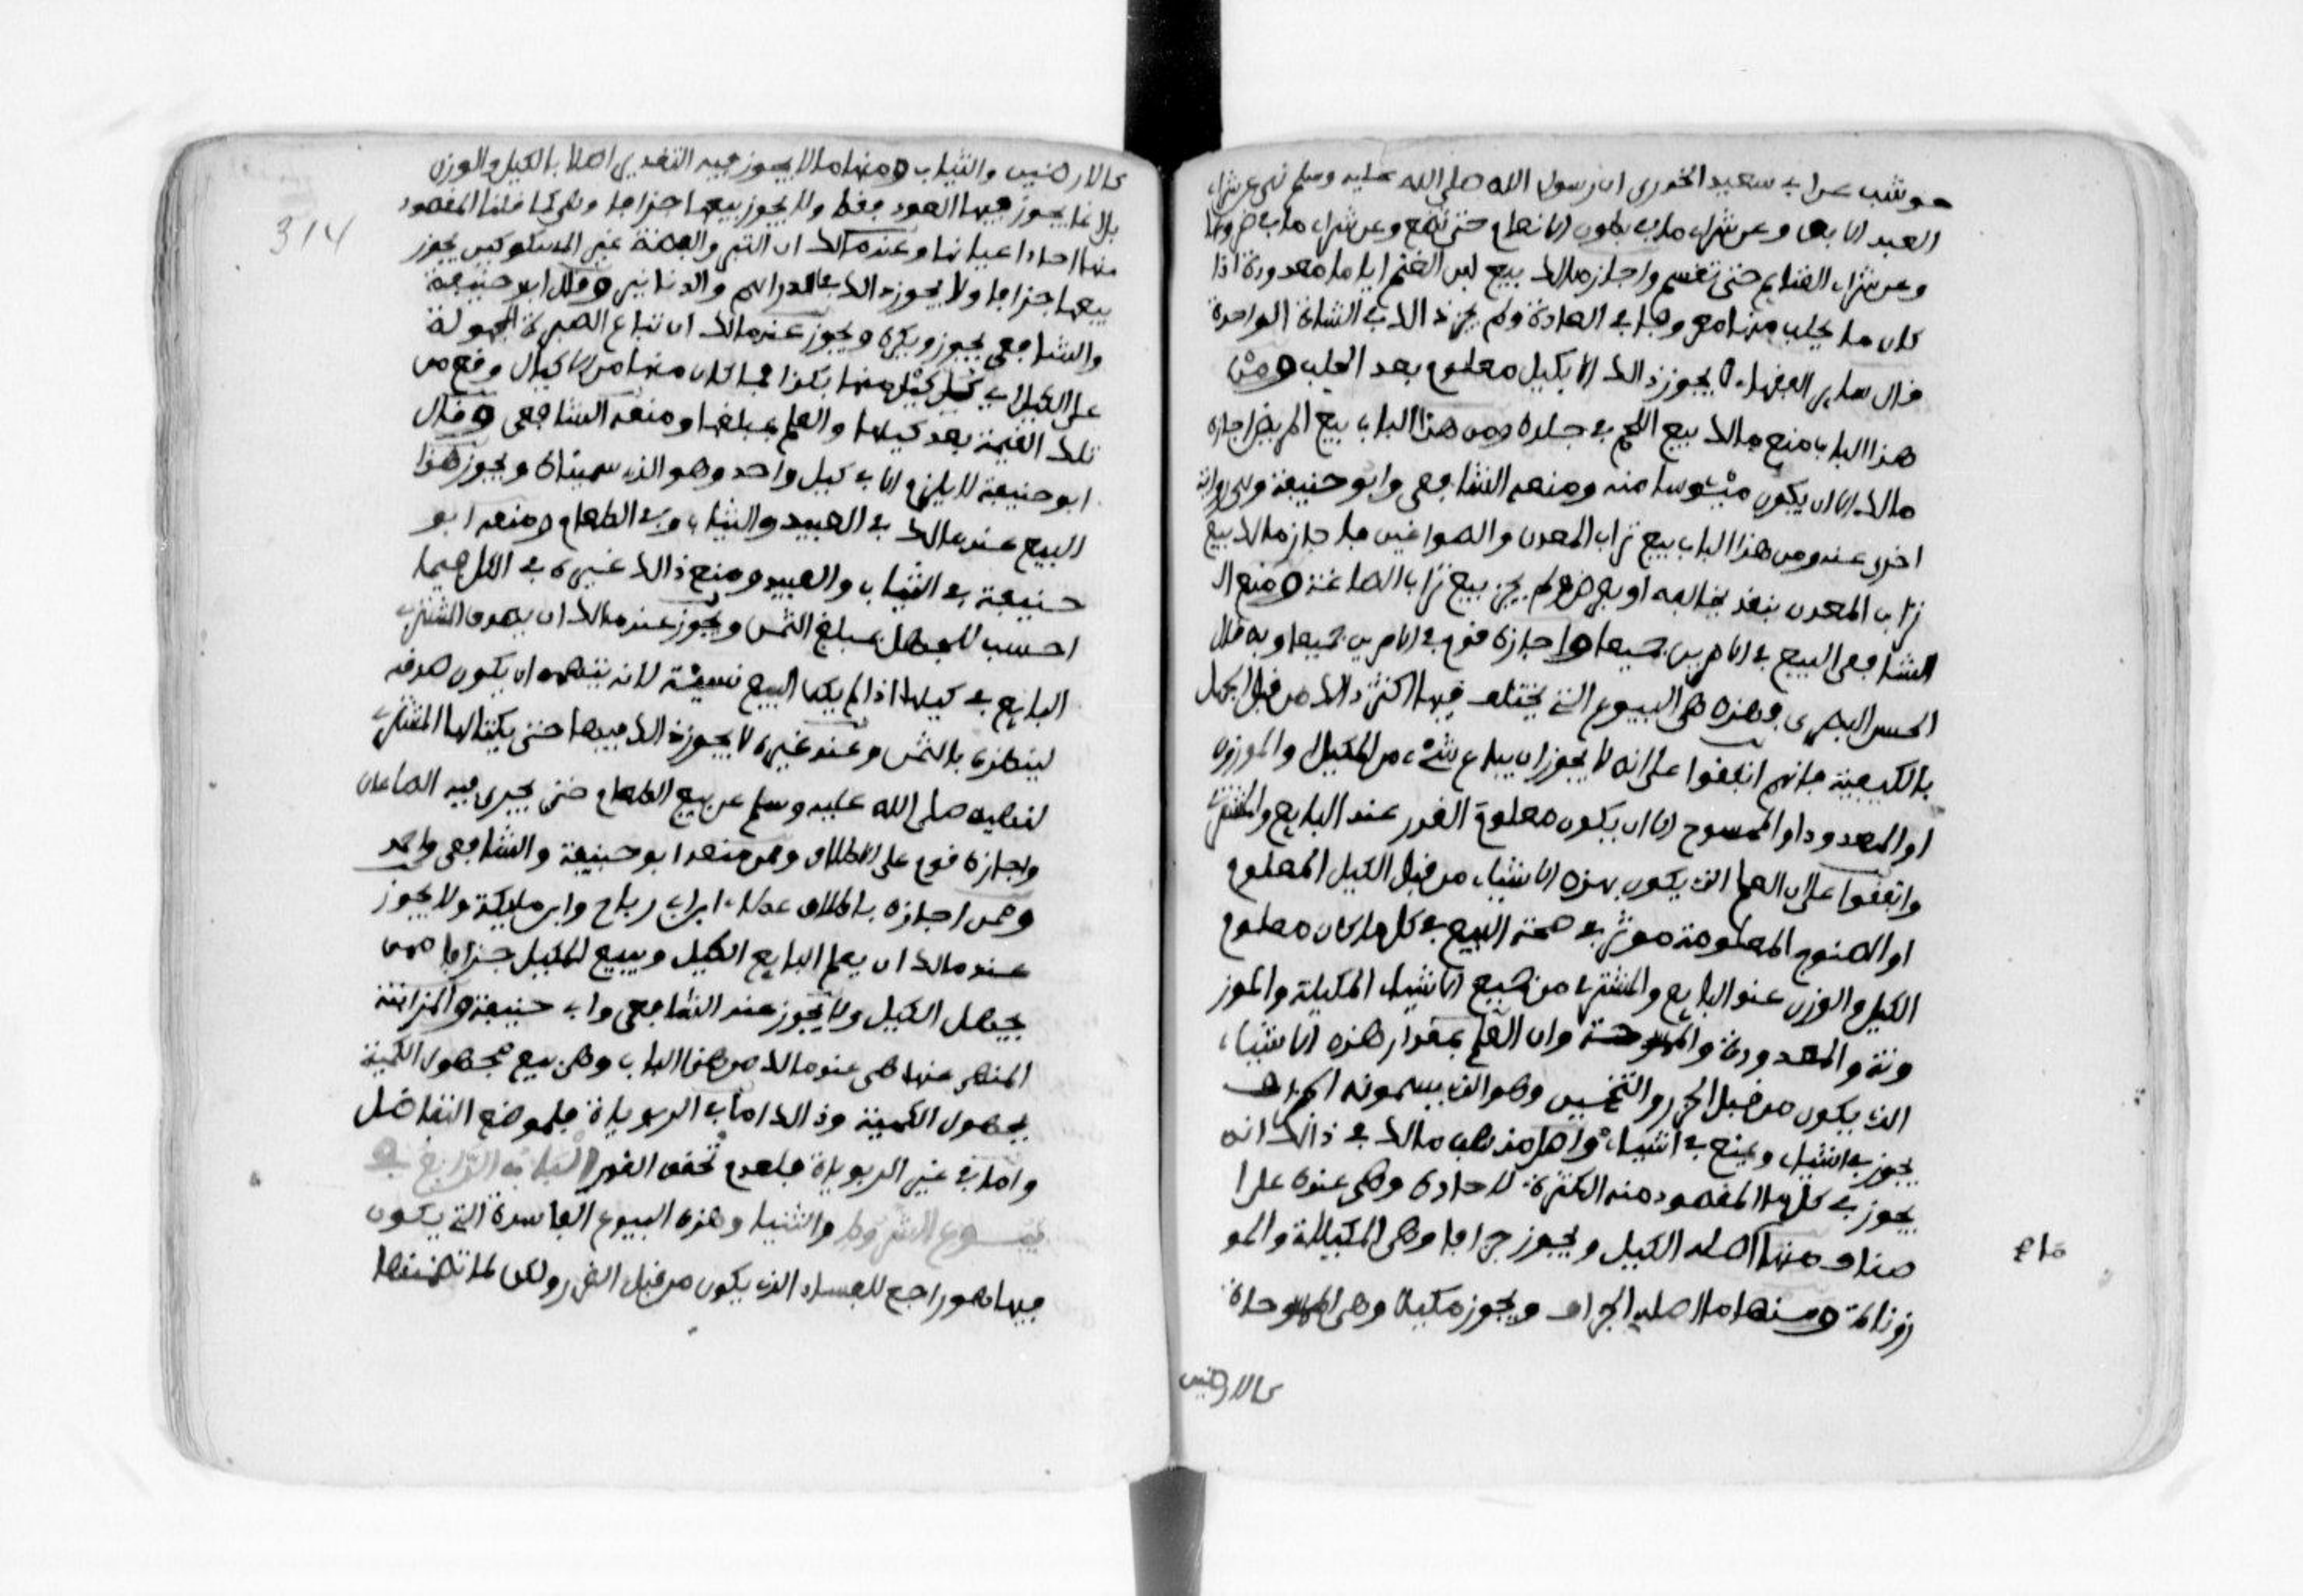 حوشب عن ابي سعيد الخدري ان رسول الله صلى الله عليه وسلم نهى عن شراء
العبد الابق وعن شراء ما في بطون الانعام حتى تضع وعن شراء ما في ضروعها
وعن شراء الغنايم حتى تقسم واجاز مالك بيع لبن الغنم اياما معدودة اذا
كان ما يحلب منها معروفا في العادة ولم يجز ذالك في الشاة الواحدة
وقال ساير الفقهاء لا يجوز ذالك الا بكيل معلوم بعد الحلب ومن
هذا الباب منع مالك بيع اللحم في جلده ومن هذا الباب بيع المريض اجازه
مالك الا ان يكون ميئوسا منه ومنعه الشافعي وابو حنيفة وهي رواية
اخرى عنه ومن هذا الباب بيع تراب المعدن والصواغين فاجاز مالك بيع
تراب المعدن بنقد يخالفه او بعرض ولم يجز بيع تراب الصاغة ومنع ال
الشافعي البيع في الامرين جميعا واجازه قوم في الامرين جميعا وبه قال
الحسن البصري فهذه هي البيوع التي يختلف فيها اكثر ذالك من قبل الجهل
بالكيفية فانهم اتفقوا على انه لا يجوز ان يباع شيء من المكيل والموزون
او المعدود او الممسوح الا ان يكون معلوم القدر عند البايع والمشتري
واتفقوا على ان العلم الذي يكون بهذه الاشياء من قبل الكيل المعلوم
او الصنوج المعلومة موثر في صحة البيع في كل ما كان معلوم
الكيل والوزن عند البايع والمشتري من جميع الاشياء المكيلة والموز
ونة والمعدودة والممسوحة وان العلم بمقدار هذه الاشياء
الذي يكون من قبل الحزر والتخمين وهو الذي يسمونه الجزاف
يجوز في اشياء ويمنع في اشياء واصل مذهب مالك في ذالك انه
يجوز في كل ما المقصود منه الكثرة لا احاده وهي عنده على ا
صناف منها ما اصله الكيل ويجوز جزافا وهي المكيلات والمو
زونات ومنها ما اصله الجزاف ويجوز مكيلا وهي الممسوحات
كالارضين
كالارضين والثياب ومنها ما لا يجوز فيه التقدير اصلا بالكيل والوزن
بل انما يجوز فيها العدد فقط ولا يجوز بيعها جزافا وهي كما قلنا المقصود
منها احاد اعيانها وعند مالك ان التبر والفضة غير المسكوكين يجوز
بيعها جزافا ولا يجوز ذالك في الدراهم والدنانير وقال ابو حنيفة
والشافعي يجوز ويكره ويجوز عند مالك ان تباع الصبرة المجهولة
على الكيل اي كل كيل منها بكذا فما كان منها من الاكيال وقع من
تلك القيمة بعد كيلها والعلم بمبلغها ومنعه الشافعي وقال
ابو حنيفة لا يلزم الا في كيل واحد وهو الذي سمياه ويجوز هذا
البيع عند مالك في العبيد والثياب وفي الطعام ومنعه ابو
حنيفة في الثياب والعبيد ومنع ذالك غيره في الكل فيما
احسب للجهل بمبلغ الثمن ويجوز عند مالك ان يصدق المشتري
البايع في كيلها اذا لم يكن البيع نسيئة لانه يتهمه ان يكون صدقه
لينظره بالثمن وعند غيره لا يجوز ذالك فيها حتى يكتالها المشتري
لنهيه صلى الله عليه وسلم عن بيع الطعام حتى يجري فيه الصاعان
واجازه قوم على الاطلاق وممن منعه ابو حنيفة والشافعي واحمد
وممن اجازه باطلاق عطاء ابن ابي رباح وابن مليكة ولا يجوز
عند مالك ان يعلم البايع الكيل ويبيع المكيل جزافا ممن
يجهل الكيل ولا يجوز عند الشافعي وابي حنيفة والمزابنة
المنهى عنها هي عند مالك من هذا الباب وهي بيع مجهول الكمية
بمجهول الكمية وذالك اما في الربويات فلموضع التفاضل
واما في غير الربويات فلعدم تحقق القدر الباب الرابع في
بيوع الشروط والثنيا وهذه البيوع الفاسدة التي يكون
فيها هو راجع للفساد الذي يكون من قبل الغرر ولكن لما تضمنها
314